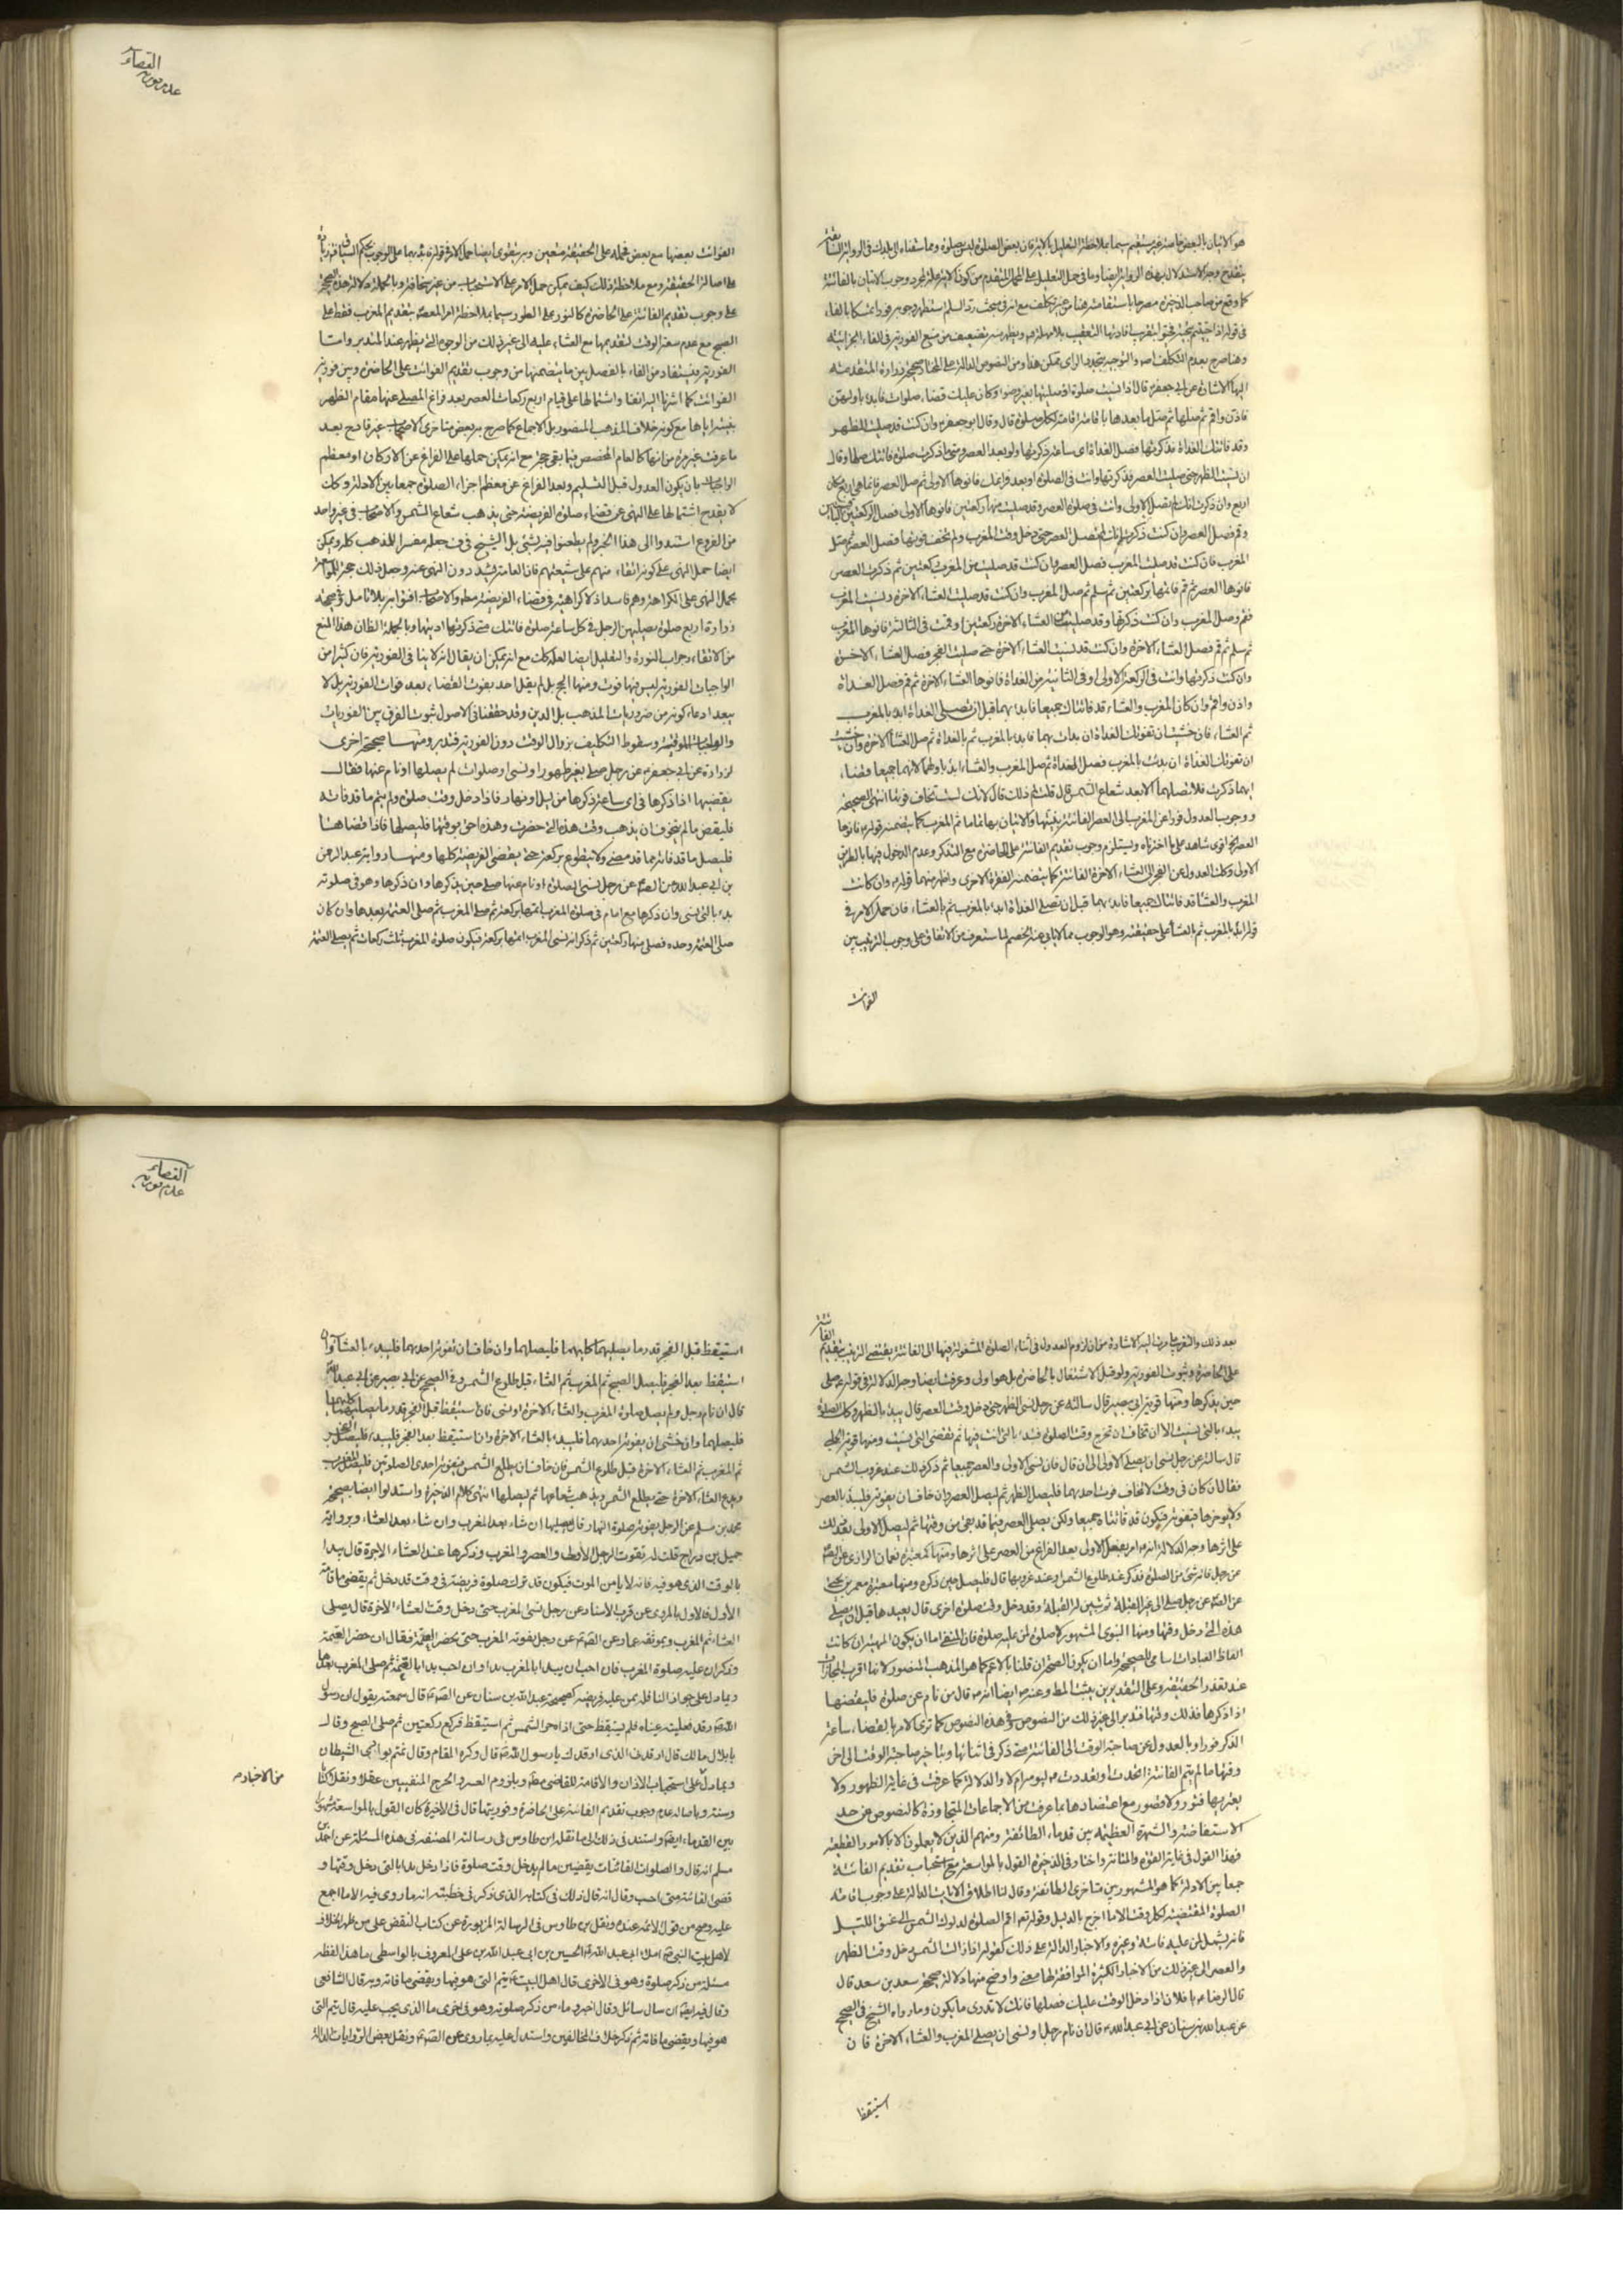 هو الاتيان بالبعض خاصة غير مستقيم سيما بملاحظة التعليل بالاية فان بعض الصلوة ليس بصلوة
كما وقع من صاحب الذخيرة مصرحا باستقامته هنا من غير تكلف مع انه في مبحث رد السلم استظهر وجوبه فورا متمسكا بالفاء
وهنا صرح بعدم التكلف
اليها الاشارة عن ابي جعفر قال اذا نسيت صلوة او صليتها بغير وضوء وكان عليك قضاء صلوات فابدء باولهن
فاذن واقم ثم صلها ثم صل ما بعدها باقامة اقامة لكل صلوة قال وقال ابو جعفر وان كنت قد صليت الظهر
وقد فاتتك الغداة فذكرتها فصل الغداة اي ساعة ذكرتها ولو بعد العصر ومتى ما ذكرت صلوة فاتتك صليتها وقال
ان نسيت الظهر حتى صليت العصر فذكرتها وانت في الصلوة او بعد فراغك فانوها الاولى ثم صل العصر فانما هي اربع مكان
اربع وان ذكرت انك لم تصل الاولى وانت في صلوة العصر وقد صليت منها ركعتين فانوها الاولى فصل الركعتين الباقيتين
وقم فصل العصر وان كنت ذكرت انك لم تصل العصر حتى دخل وقت المغرب ولم تخف فوتها فصل العصر ثم صل
المغرب فان كنت قد صليت المغرب فصل العصر وان كنت قد صليت من المغرب ركعتين ثم ذكرت العصر
فانوها العصر ثم قم فاتمها بركعتين ثم سلم ثم صل المغرب وان كنت قد صليت العشاء الاخرة ونسيت المغرب
فقم وصل المغرب وان كنت ذكرتها وقد صليت من العشاء الاخرة ركعتين او قمت في الثالثة فانوها المغرب
ثم سلم ثم قم فصل العشاء الاخرة وان كنت قد نسيت العشاء الاخرة حتى صليت الفجر فصل العشاء الاخرة
وان كنت ذكرتها وانت في الركعة الاولى او في الثانية من الغداة فانوها العشاء الاخرة ثم قم فصل الغداة
واذن واقم وان كان المغرب والعشاء قد فاتتاك جميعا فابدء بهما قبل ان تصلي الغداة ابدء بالمغرب
ثم العشاء فان خشيت ان تفوتك الغداة ان بدأت بهما فابدء بالمغرب ثم بالغداة ثم صل العشاء الاخرة وان خشيت
ان تفوتك الغداة ان بدئت بالمغرب فصل الغداة ثم صل المغرب والعشاء ابدء باولهما لانهما جميعا قضاء
ايهما ذكرت فلا تصلهما الا بعد شعاع الشمس قال قلت لم ذلك قال لانك لست تخاف فوتها انتهى الصحيحة
ووجوب العدول فورا عن المغرب الى العصر الفائتة بنيتها والاتيان بها تماما ثم المغرب كما يضمنه قوله فانوها
العصر اقوى شاهد على ما اخترناه ويستلزم وجوب تقديم الفائتة على الحاضرة مع التذكر وعدم الدخول فيها بالطريق
الاولى وكك العدول عن الفجر الى العشاء الاخرة الفائتة كما يتضمنه الفقرة الاخرى واظهر منهما قوله وان كانت
المغرب والعشاء قد فاتتاك جميعا فابدء بهما قبل ان تصلي الغداة ابدء بالمغرب ثم بالعشاء فان حمل الامر في
قوله ابدء بالمغرب ثم بالعشاء على حقيقته وهو الوجوب مما لا يابى عنه الخصم لما ستعرف من الاتفاق على وجوب الترتيب بين
الفوائت
القضاء
الفوائت بعضها مع بعض فحمله على الحقيقة متعين
على اصالة الحقيقة ومع ملاحظة ذلك كيف يمكن حمل الامر على الاستحباب من غير سخافة وبالجملة دلالة هذه الصحيحة
على وجوب تقديم الفائتة على الحاضرة كالنور على الطور سيما بملاحظة امر المعصوم بتقديم المغرب فقط على
الصبح مع عدم سعة الوقت لتقديمها مع العشاء عليه الى غير ذلك من الوجوه التي يظهر عند المتدبر واما
الفورية فيستفاد من الفاء بالفصل بين ما يتضمنها من وجوب تقديم الفوائت على الحاضرة وبين فورية
الفوائت كما اشرنا اليه انفا واشتمالها على قيام اربع ركعات العصر بعد فراغ المصلي عنها مقام الظهر
بنيته اياها مع كونه خلاف المذهب المنصور بل الاجماع كما صرح به بعض متاخري الاصحاب غير قادح بعد
ما عرفت غير مرة من انها كالعام المخصص فيما بقي حجة مع انه يمكن حملها على الفراغ عن الاركان او معظم
الواجبات بان يكون العدول قبل التسليم وبعد الفراغ عن معظم اجزاء الصلوة جمعا بين الادلة وكان
لا يقدح اشتمالها على النهي عن قضاء صلوة الفريضة حتى يذهب شعاع الشمس والاصحاب في غير واحد
من الفروع استندوا الى هذا الخبر ولم يطعنوا فيه بشيء بل الشيخ في ف جعله مفسرا للمذهب كله ويمكن
ايضا حمل النهي على كونه اتقاء
بحمل النهي على الكراهة وهم فاسد اذ لا كراهية في قضاء الفريضة مطلقا
زرارة اربع صلوة يصليهن الرجل في كل ساعة صلوة فاتتك متى ذكرتها اديتها وبالجملة الظان هذا المنع
من الاتقاء
الواجبات الفورية ليس فيها فوت ومنها الحج بل لم يقل احد بفوت القضاء بعد فوات الفورية بل لا
يبعد ادعاء كونه من ضروريات المذهب بل الدين وقد حققنا في الاصول ثبوت الفرق بين الفوريات
والواجبات الموقتة وسقوط التكليف بزوال الوقت دون الفورية فتدبر ومنها صحيحة اخرى
لزرارة عن ابي جعفر عن رجل صلى بغير طهور او نسي صلوات لم يصلها او نام عنها فقال
يقضيها اذا ذكرها في اي ساعة ذكرها من ليل او نهار فاذا دخل وقت صلوة ولم يتم ما قد فاته
فليقض ما لم يتخوف ان يذهب وقت هذه التي حضرت وهذه احق بوقتها فليصلها فاذا قضاها
فليصل ما قد فاته مما قد مضى ولا يتطوع بركعة حتى يقضي الفريضة كلها ومنها رواية عبد الرحمن
بن ابي عبد الله عن رجل نسي الصلوة او نام عنها صلى حين يذكرها وان ذكرها وهو في صلوته
بدء بالتي نسي وان ذكرها مع امام في صلوة المغرب اتمها بركعة ثم صلى المغرب ثم صلى العتمة بعدها وان كان
صلى العتمة وحده فصلى منها ركعتين ثم ذكر انه نسي المغرب اتمها بركعة فيكون صلوة المغرب ثلث ركعات ثم يصلي العتمة
بعد ذلك
على الحاضرة وثبوت الفورية ولو قبل الاشتغال بالحاضرة بل هو اولى وعرفت ايضا وجه الدلالة في قوله صلى
حين يذكرها ومنها قوية ابي بصير قال سالته عن رجل نسي الظهر حتى دخل وقت العصر قال يبدء بالظهر وكذلك الصلوة
يبدء بالتي نسيت الا ان تخاف ان تخرج وقت الصلوة فتبدء بالتي انت فيها ثم تقضي التي نسيت ومنها قوية الحلبي
قال سالته عن رجل نسي ان يصلي الاولى الى ان قال فان نسي الاولى والعصر جميعا ثم ذكر ذلك عند غروب الشمس
فقال ان كان في وقت لا يخاف فوت احدهما فليصل الظهر ثم ليصل العصر وان خاف ان يفوته فليبدء بالعصر
ولا يؤخرها فيفوته فيكون قد فاتتاه جميعا ولكن يصلي العصر فيما قد بقي من وقتها ثم ليصل الاولى بعد ذلك
على اثرها وجه الدلالة انه امر بفعل الاولى بعد الفراغ من العصر على اثرها ومنها معتبرة نعمان الرازي عن
عن رجل فاته شيء من الصلوة فذكر عند طلوع الشمس وعند غروبها قال فليصل حين ذكره ومنها معتبرة معمر بن يحيى
عن رجل صلى الى غير القبلة ثم تبين له القبلة وقد دخل وقت صلوة اخرى قال يعيدها قبل ان يصلي
هذه التي دخل وقتها ومنها النبوي المشهور لا صلوة لمن عليه صلوة
الفاظ العبادات اسامي للصحيحة واما ان يكون الصحة ان قلنا بالاعم كما هو المذهب المنصور لانها اقرب المجازات
عند تعذر الحقيقة وعلى التقديرين يثبت المط وعنه ايضا انه قال من نام عن صلوة فليقضها
اذا ذكرها فذلك وقتها فتدبر الى غير ذلك من النصوص وفي هذه النصوص كما ترى الامر بالقضاء ساعة
الذكر فورا وبالعدول عن صاحبة الوقت الى الفائتة متى ذكر في اثنائها وبتاخير صاحبة الوقت الى اخر
وقتها ما لم يتم الفائتة اتحدت او تعددت
يعتريها فتور ولا قصور مع اعتضادها بما عرفت من الاجماعات المتجاوزة كالنصوص عن حد
الاستفاضة والشهرة العظيمة بين قدماء الطائفة ومنهم الذين لا يعملون الا بالامور القطعية
فهذا القول في غاية القوة والمتانة واختار في الذخيرة القول بالمواسعة مع استحباب تقديم الفائتة
جمعا بين الادلة كما هو المشهور بين متاخري الطائفة وقال لنا اطلاق الايات الدالة على وجوب اقامة
الصلوة المقتضية لكل وقت الا ما اخرج بالدليل وقوله تعالى اقم الصلوة لدلوك الشمس الى غسق الليل
فانه يشمل من عليه فائتة وغيره والاخبار الدالة على ذلك كقوله اذا زالت الشمس دخل وقت الظهر
والعصر الى غير ذلك من الاخبار الكثيرة الموافقة لها معنى واوضح منها دلالة صحيحة سعد بن سعد قال
قال الرضا يا فلان اذا دخل الوقت عليك فصلها فانك لا تدري ما يكون وما رواه الشيخ في الصحيح
عن عبد الله بن سنان عن ابي عبد الله قال ان نام رجل او نسي ان يصلي المغرب والعشاء الاخرة فان
استيقظ
القضاء
استيقظ قبل الفجر قدر ما يصليهما كلتيهما فليصلهما وان خاف ان تفوته احدهما فليبدء بالعشاء وان
استيقظ بعد الفجر فليصل الصبح ثم المغرب ثم العشاء قبل طلوع الشمس وفي الصحيح عن ابي بصير عن ابي عبد الله
قال ان نام رجل ولم يصل صلوة المغرب والعشاء الاخرة او نسي فان استيقظ قبل الفجر قدر ما يصليهما كلتيهما
فليصلهما وان خشي ان يفوته احديهما فليبدء بالعشاء الاخرة وان استيقظ بعد الفجر فليبدء فليصل الفجر
ثم المغرب ثم العشاء الاخرة قبل طلوع الشمس فان خاف ان يطلع الشمس فيفوته احدى الصلوتين فليصل المغرب
ويدع العشاء الاخرة حتى يطلع الشمس ويذهب شعاعها ثم ليصلها انتهى كلام الذخيرة واستدلوا ايضا بصحيحة
محمد بن مسلم عن الرجل يفوته صلوة النهار قال يصليها ان شاء بعد المغرب وان شاء بعد العشاء وبرواية
جميل بن دراج قلت له تفوت الرجل الاولى والعصر والمغرب وذكرها عند العشاء الاخرة قال يبدا
بالوقت الذي هو فيه فانه لا يامن الموت فيكون قد ترك صلوة فريضة في وقت قد دخل ثم يقضي ما فاته
الاول فالاول بالمروي عن قرب الاسناد عن رجل نسي المغرب حتى دخل وقت العشاء الاخرة قال يصلي
العشاء ثم المغرب وبموثقة عمار عن الصادق عن رجل يفوته المغرب حتى يحضر العتمة فقال ان حضر العتمة
وذكر ان عليه صلوة المغرب فان احب ان يبدا بالمغرب بدا وان احب بدا بالعتمة ثم صلى المغرب بعدها
وبما دل على جواز النافلة لمن عليه فريضة كصحيحة عبد الله بن سنان عن الصادق قال سمعته يقول ان رسول
الله رقد فغلبته عيناه فلم يستيقظ حتى اذاه حر الشمس ثم استيقظ فركع ركعتين ثم صلى الصبح وقال
يا بلال مالك قال ارقدني الذي ارقدك يا رسول الله قال وكره المقام وقال نمتم بوادي الشيطان
وبما دل على استحباب الاذان والاقامة للقاضي مطلقا وبلزوم العسر والحرج المنفيين عقلا ونقلا كتابا
من الاخبار
وسنة وباصالة عدم وجوب تقديم الفائتة على الحاضرة وفوريتها قال في الاخيرة كان القول بالمواسعة مشهورا
بين القدماء ايضا واستند في ذلك الى ما نقله ابن طاوس في رسالته المصنفة في هذه المسئلة عن
مسلم انه قال والصلوات الفائتات يقضين ما لم يدخل وقت صلوة فاذا دخل بدا بالتي دخل وقتها و
قضى الفائتة متى احب وقال انه قال ذلك في كتابه الذي ذكر في خطبته انه ما روى فيه الا ما اجمع
عليه وصح من قول الائمة عنده ونقل بن طاوس في الرسالة المزبورة عن كتاب النقض على من اظهر الخلاف
لاهل بيت النبي املاء ابي عبد الله الحسين بن ابي عبد الله بن علي المعروف بالواسطي ما هذا لفظه
مسئلة من ذكر صلوة وهو في الاخرى قال اهل البيت يتم التي هو فيها ويقضي ما فاته وبه قال الشافعي
وقال فيه ايضا ان سال سائل وقال اخبرونا عمن ذكر صلوته وهو في اخرى ما الذي يجب عليه قال يتم التي
هو فيها ويقضي ما فاته ثم ذكر خلاف المخالفين واستدل عليه بما روى عن الصادق ونقل بعض الروايات الدالة